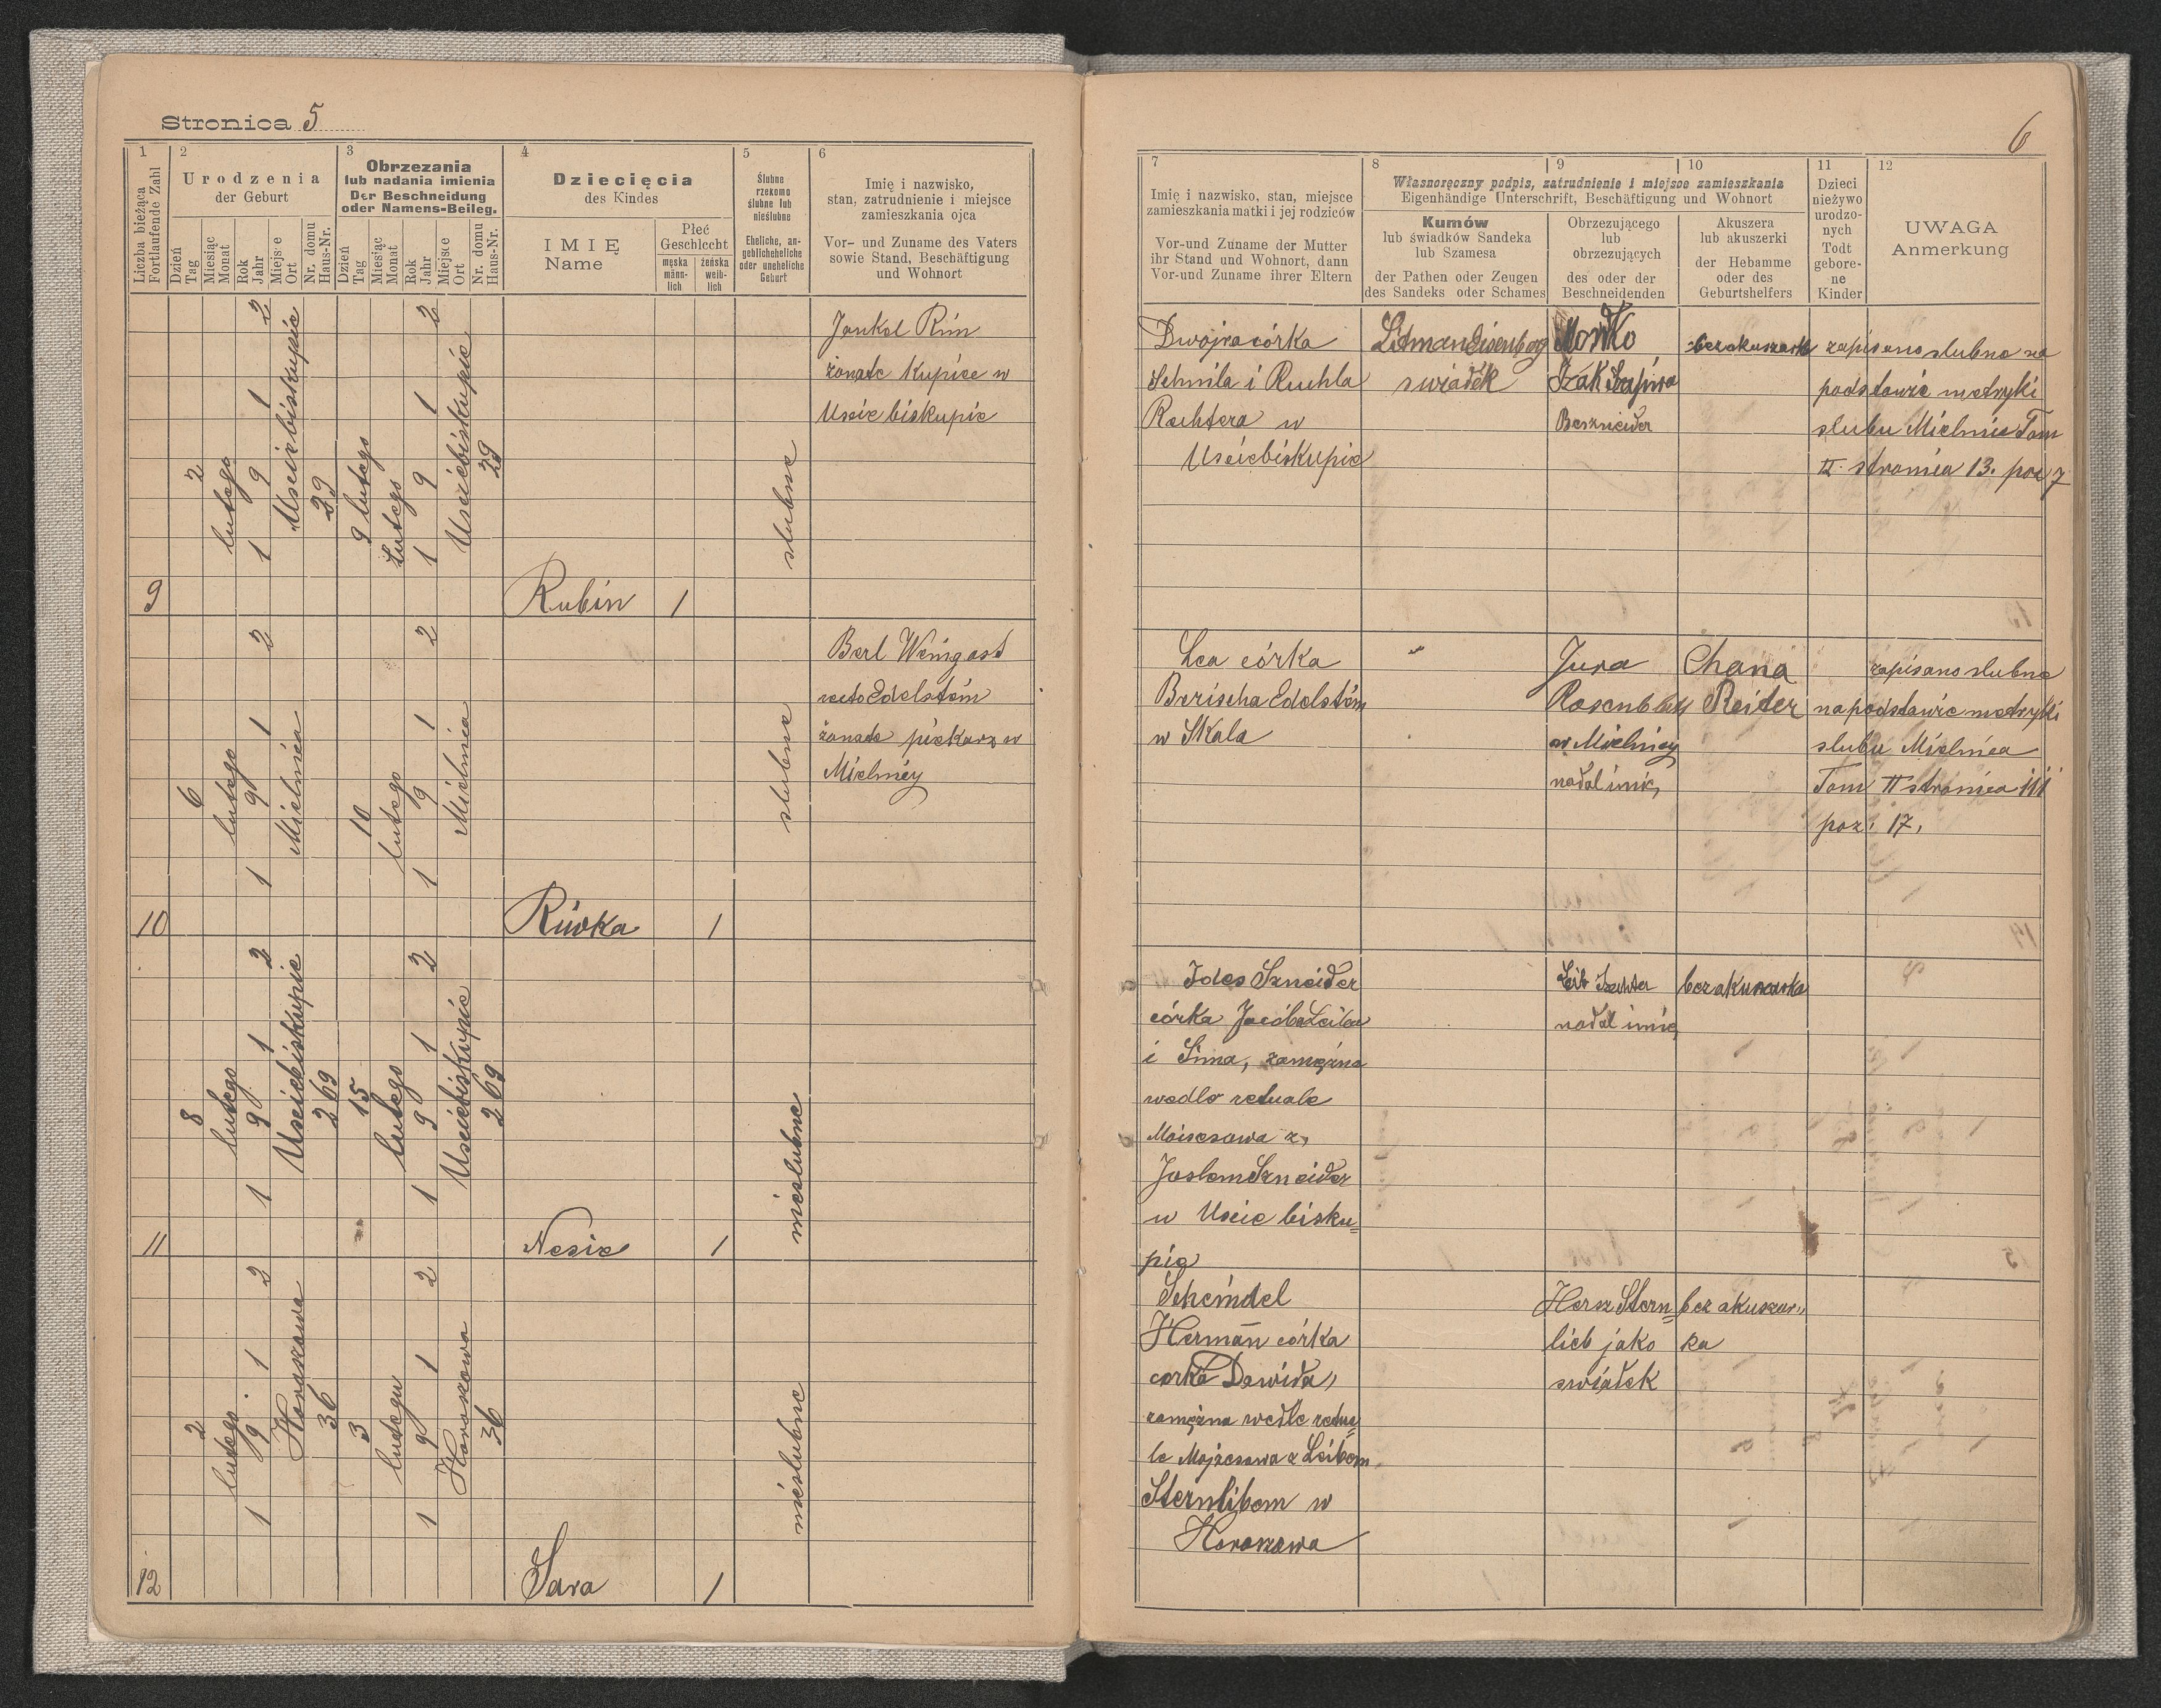 Stronica 5
1
Liczba bieżąca
Fortlaufende Zahl
2
Urodzenia
der Geburt
Dzień
Tag
Miesiąc
Monat
Rok
Jahr
Miejsce
Ort
Nr. domu
Haus-Nr.
3
Obrzezania
lub nadania imienia
Der Beschneidung
oder Namens-Beileg.
Dzień
Tag
Miesiąc
Monat
Rok
Jahr
Miejsce
Ort
Nr. domu
Haus-Nr.
4
Dziecięcia
des Kindes
IMIĘ
Name
Płeć
Geschlecht
męska
männ-
lich
żeńska
weib-
lich
5
Ślubne
rzekomo
ślubne lub
nieślubne
Eheliche, an-
geblicheheliche
oder uneheliche
Geburt
6
Imię i nazwisko,
stan, zatrudnienie i miejsce
zamieszkania ojca
Vor- und Zuname des Vaters
sowie Stand, Beschäftigung
und Wohnort
9
2
lutego
1912
Uscie biskupie
29
9 lutego
Lutego
1912
Uscie biskupie
29
Rubin
1
slubne
Jankel Rim
żonate Kupiec w
Uscie biskupie
10
6
lutego
1912
Mielnica
10
lutego
1912
Mielnica
Riwka
1
slubne
Berl Weingast
recto Edelstein
żonate piekarz w
Mielnicy
11
8
lutego
1912
Uscie biskupie
269
15
lutego
1912
Uscie biskupie
269
Nesie
1
nieslubne
12
2
lutego
1912
Horoszowa
36
3
lutego
1912
Horoszowa
36
Sara
1
nieslubne
6
7
Imię i nazwisko, stan, miejsce
zamieszkania matki i jej rodziców
Vor-und Zuname der Mutter
ihr Stand und Wohnort, dann
Vor-und Zuname ihrer Eltern
8
9
10
Własnoręczny podpis, zatrudnienie i miejsce zamieszkania
Eigenhändige Unterschrift, Beschäftigung und Wohnort
Kumów
lub świadków Sandeka
lub Szamesa
der Pathen oder Zeugen
des Sandeks oder Schames
Obrzezującego
lub
obrzezujących
des oder der
Beschneidenden
Akuszera
lub akuszerki
der Hebamme
oder des
Geburtshelfers
11
Dzieci
nieżywo
urodzo-
nych
Todt
gebore-
ne
Kinder
12
UWAGA
Anmerkung
Dwojra córka
Schmila i Ruchla
Rechtera w
Uscie biskupie
Litman Eisenberg
swiadek
Moszko
Izak Szapira
Besznieider
bez akuszerki
zapisano slubne na
podstawie metryki
slubu Mielnica Tom
II. stronica 13. poz 7
Lea córka
Berischa Edelstein
w Skala
"
Jura
Rosenblatt
w Mielnicy
nadal imię
Chana
Reiter
zapisano slubne
na podstawie metryki
slubu Mielnica
Tom II stronica 111
poz. 17.
Ides Szneider
córka Jacóba Leiba
i Sima, zamężna
wedlo retuale
Moisesowa z
Joslem Szneider
w Uscie bisku-
pie
Leib Szechter
nadal imię
bez akuszerka
Scheindel
Herman córka
corka Dawida,
zamężna wedle retua-
le Mojzesowa z Leibem
Sternlibem w
Horoszowa
Hersz Stern-
lieb jako
swiadek
bez akuszer-
ka